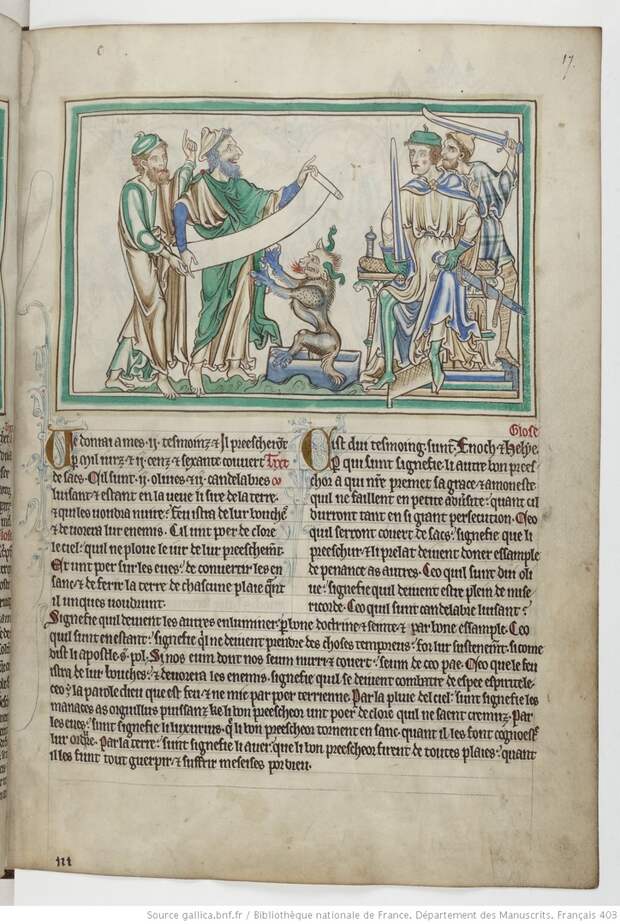 17.
Je donrai a mes .ii. tesmoinz & il preescherunt
p mil iurz & .ii. cenz & sexante couvert Text
de sacs. Cil sunt .ii. olives & .ii. candelabres
luisant & estant en la veue li sire de la terre.
& qui les voudra nuire : feu istra de lur buche
& devora lur enemis. Cil unt poer de clore
le ciel : quil ne ploue le iur de lur preeschemt.
Et unt poer sur les eues : de convertir les en
sanc & de ferir la terre de chascune plaie qant
il unques voudrunt.
Glose
Cist dui tesmoing sunt : Enoch & Helye.
p qui sunt signefie li autre bon prees
cheor a qui nre premet sa grace & amoneste
quil ne faillent en petite adversite : quant cil
durront tant en si grant persecution. Ceo
quil serront covert de sacs : signefie que li
preescheur & li prelat devent doner essample
de penance as autres. Ceo quil sunt dui oli
ve : signefie quil devent estre plein de mise
ricorde. Ceo quil sunt candelabre luisant :
Signefie quil devent les autres enluminer p bone doctrine & seinte & par bone essample. Ceo
quil sunt en estant : signefie qil ne devent prendre des choses temporeus : for lur sustenent. si come
dist li apostle s. pol. Si nos eum dont nos seum nurri & covert : seum de ceo pae. Ceo que le feu
istra de lur bouches : & devorera les enemis. signefie quil se devent combatre de espee espiritele.
ceo : la parole dieu que est feu & ne mie par poer terrienne. Par la pluie del ciel : sunt signefie les
manaces as orguillus puissanz ke li bon preescheor unt poer de clore quil ne saent cremuz. Par
les eues : sunt signefie li luxurius. q li bon preescheor tornent en sanc. quant il les font cognoestre
lur ordre. Par la terre : sunt signefie li aver. que li bon preescheor firent de toutes plaies : quant
il les funt tout guerpir & suffrir meseises por dieu.
iii
Source gallica.bnf.fr / Bibliothèque nationale de France. Département des Manuscrits. Français 403